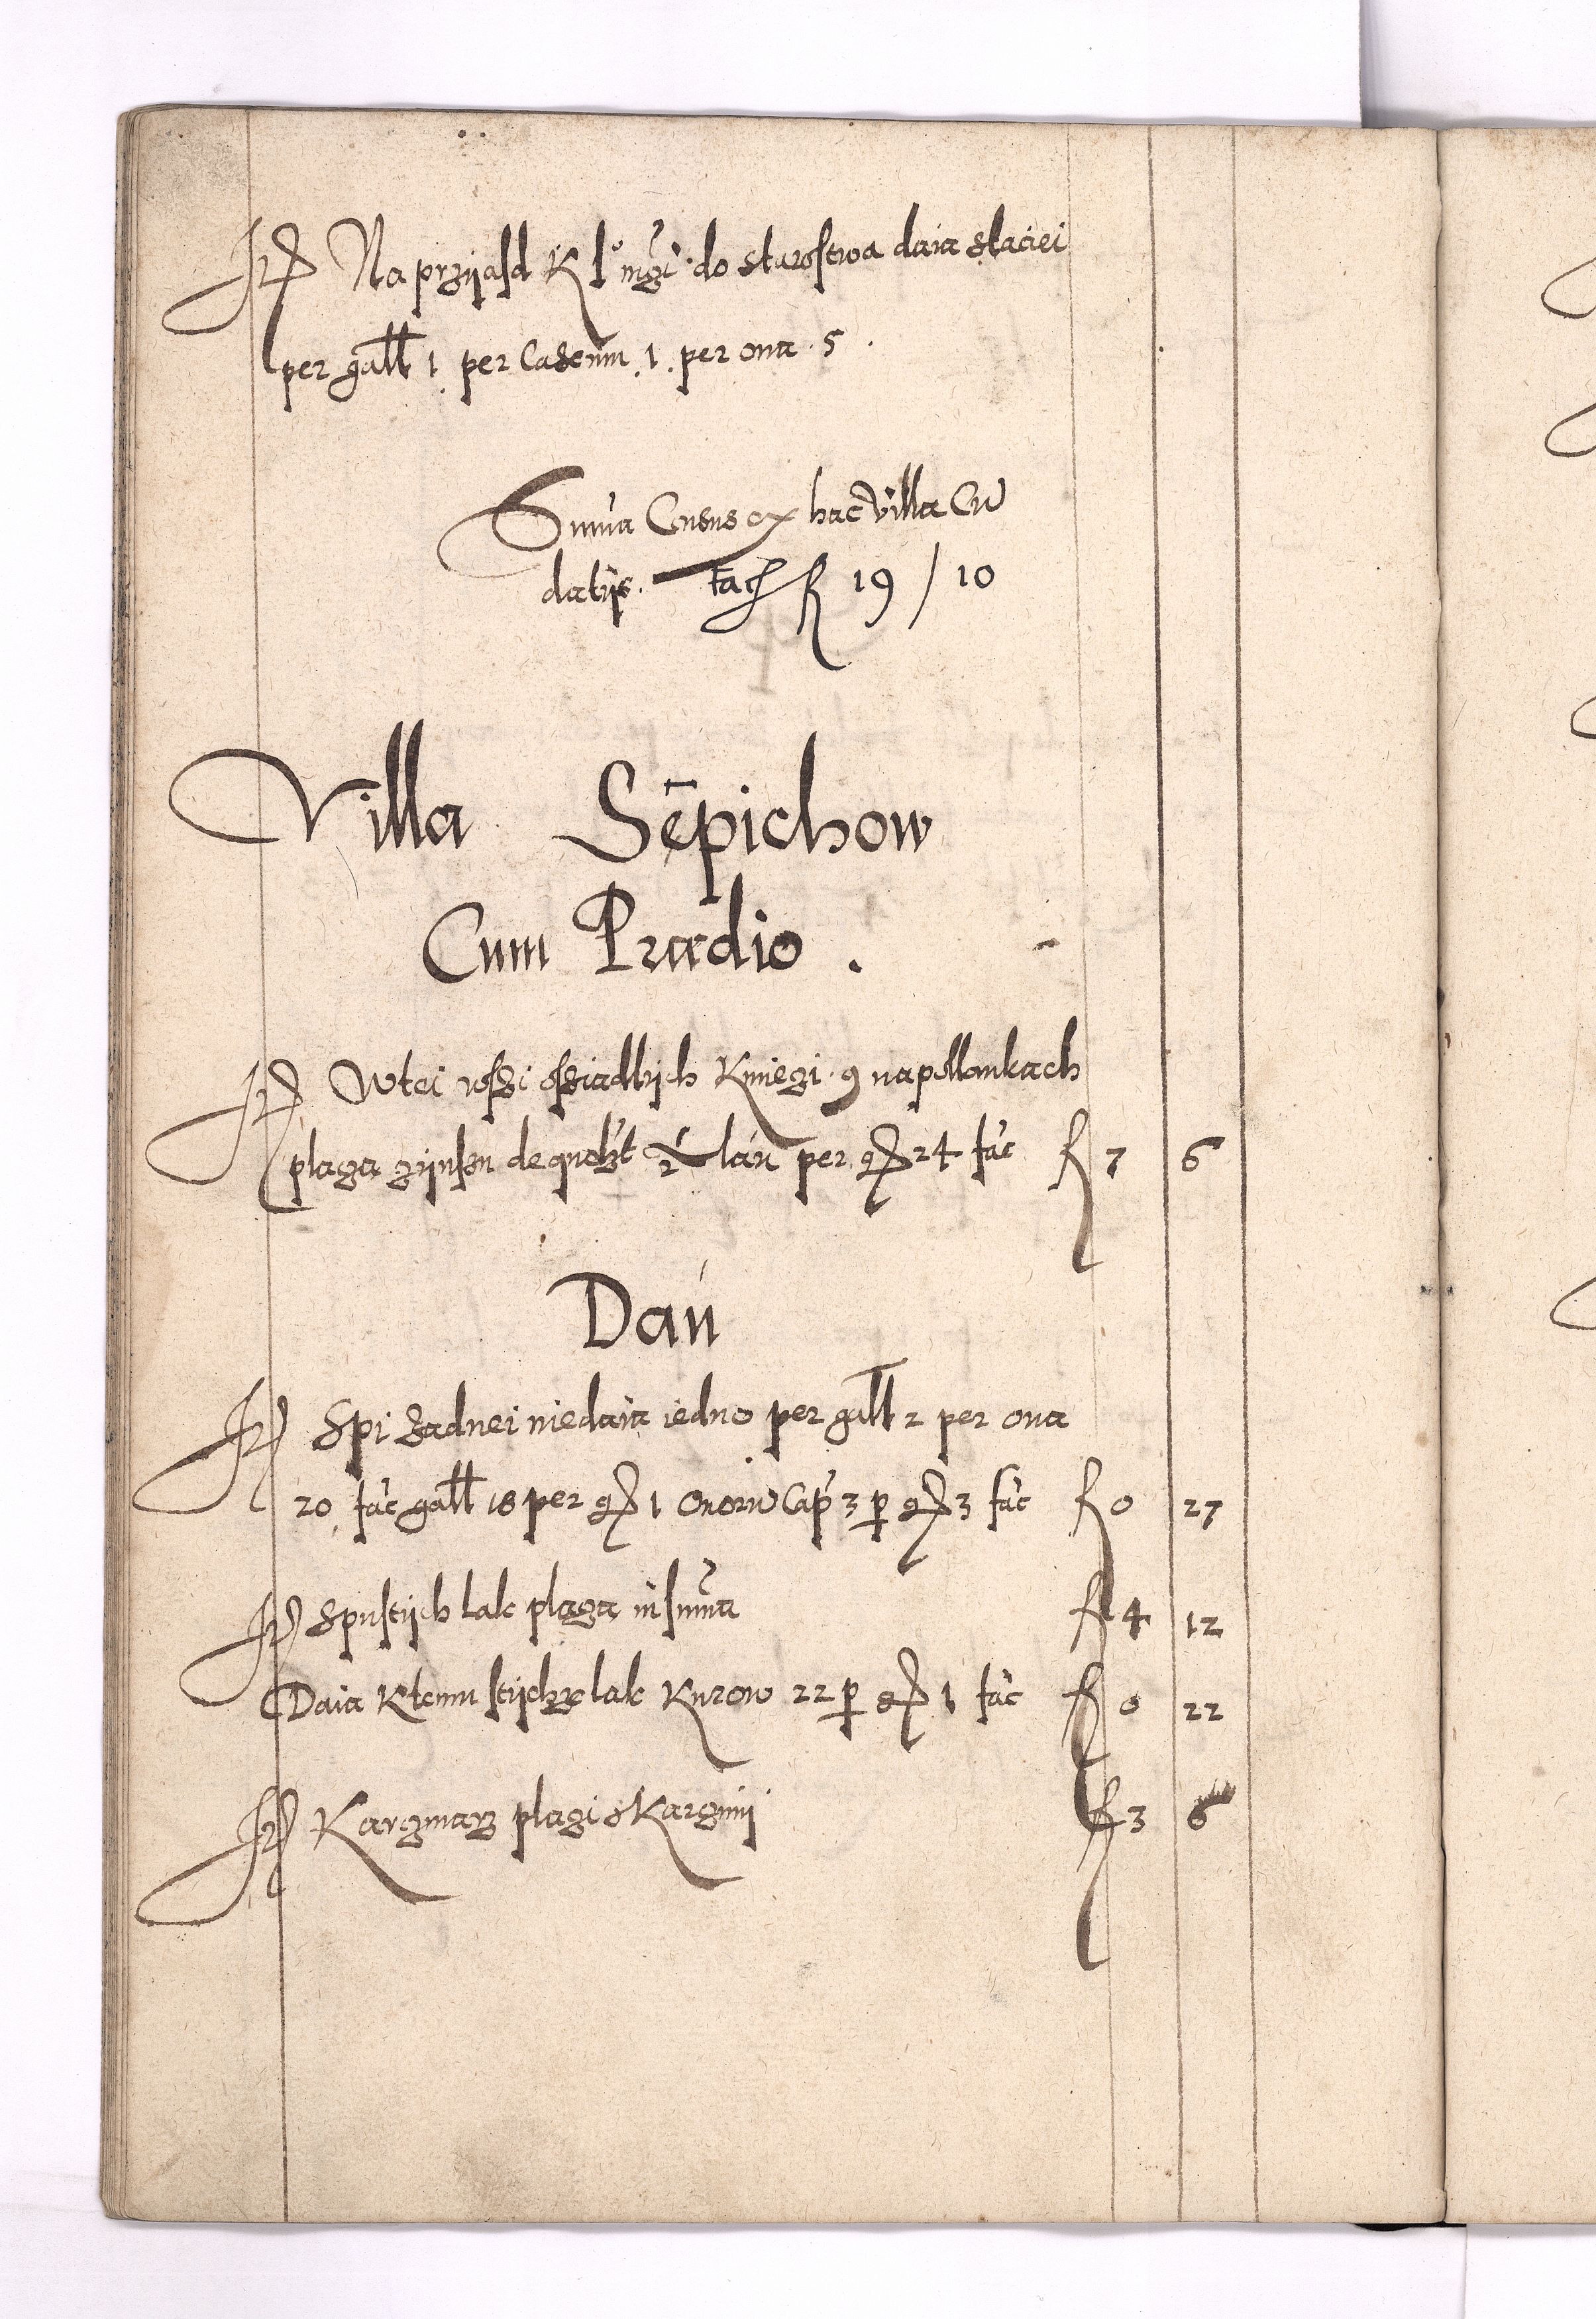 It Na przÿasd K Jo mci do starostwa daia staciei
per gall 1 per Caseum .1. per oua 5 .
Suma Census ex hac villa Cu
datÿs. facit fl 19 / 10
Villa Sēpichow
Cum Prædio .
It Wtei wszi osziadlÿch Kmiezi 9 napollankach
plaza zÿnszu de quolzt ½ lan per gr 24 fac fl 7 6
Dan
It Spi zadnei niedaia iedno per gall 2 per oua
20 fac gall 18 per gr 1 ouoru Cap 3 p gr 3 fac fl 0 27
It Spustÿch lak plaza in suma fl 4 12
Daia Ktemu stÿchze lak Kurow 22 p gr 1 fac fl 0 22
It Karczmarz plazi s Karczmÿ fl 3 6